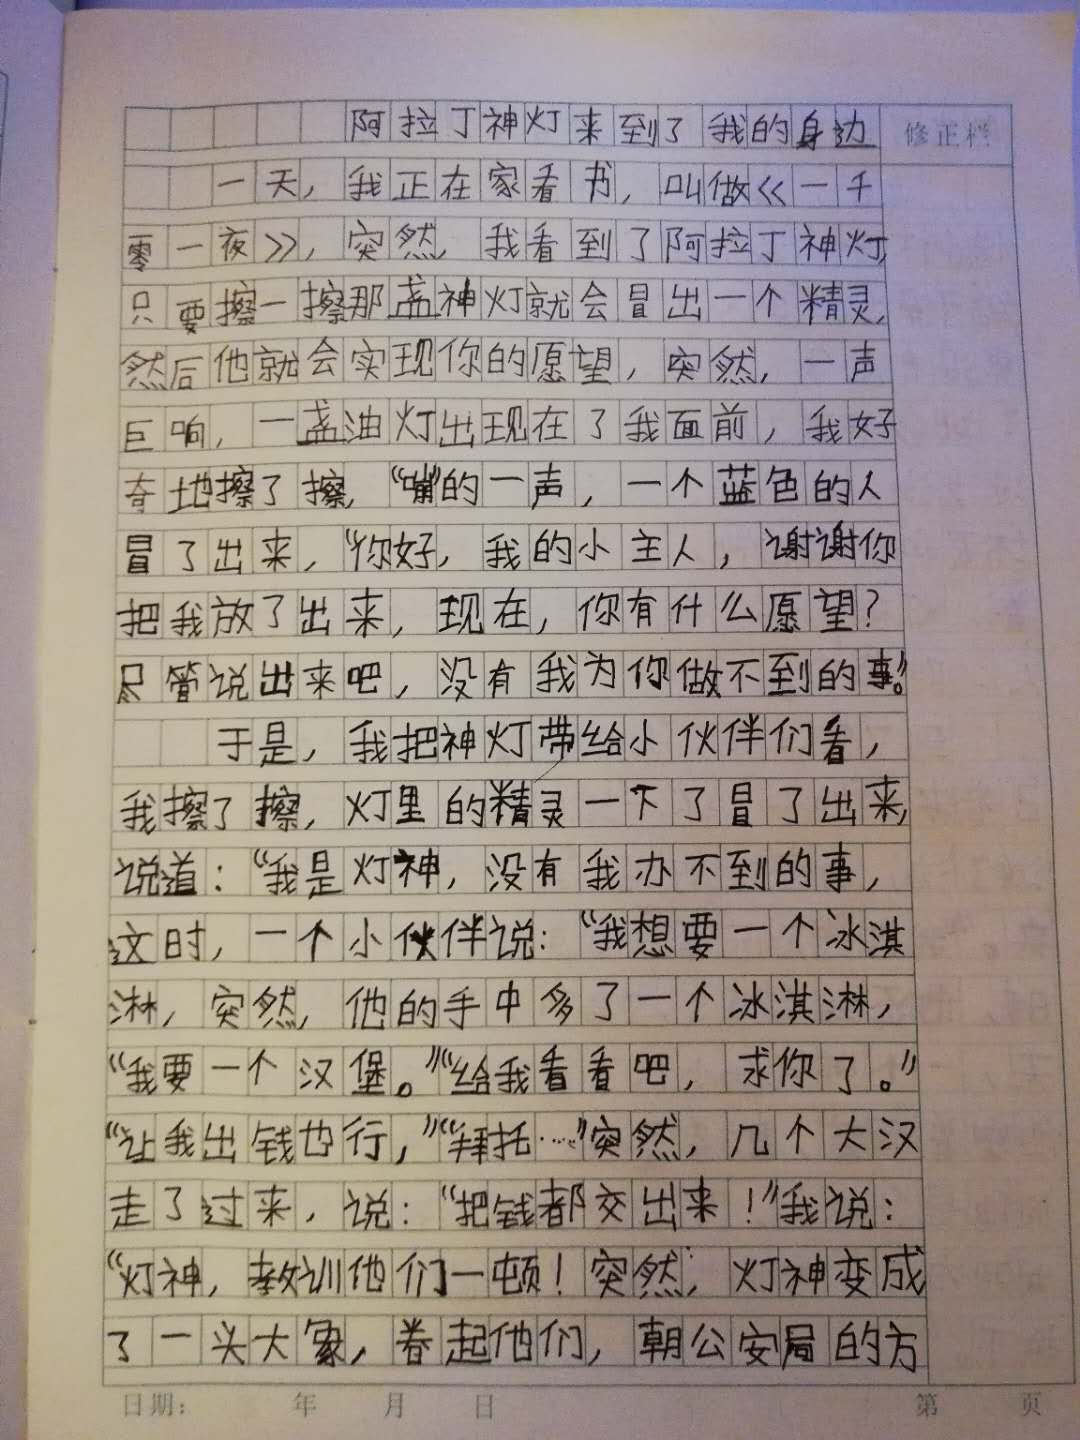 阿拉丁神灯来到了我的身边
修正栏
一天，我正在家看书，叫做《一千
零一夜》，突然，我看到了阿拉丁神灯，
只要擦一擦那盏神灯就会冒出一个精灵，
然后他就会实现你的愿望，突然，一声
巨响，一盏油灯出现在了我面前，我好
奇地擦了擦，“嘣”的一声，一个蓝色的人
冒了出来，“你好，我的小主人，谢谢你
把我放了出来，现在，你有什么愿望？
只管说出来吧，没有我为你做不到的事。”
于是，我把神灯带给小伙伴们看，
我擦了擦，灯里的精灵一下了冒了出来，
说道：“我是灯神，没有我办不到的事，
这时，一个小伙伴说：“我想要一个冰淇
淋，突然，他的手中多了一个冰淇淋，
“我要一个汉堡。”“给我看看吧，求你了。”
“让我出钱也行，”“拜托…”突然，几个大汉
走了过来，说：“把钱都交出来！”我说：
“灯神，教训他们一顿！突然，灯神变成
了一头大象，卷起他们，朝公安局的方
日期： 年 月 日 第 页